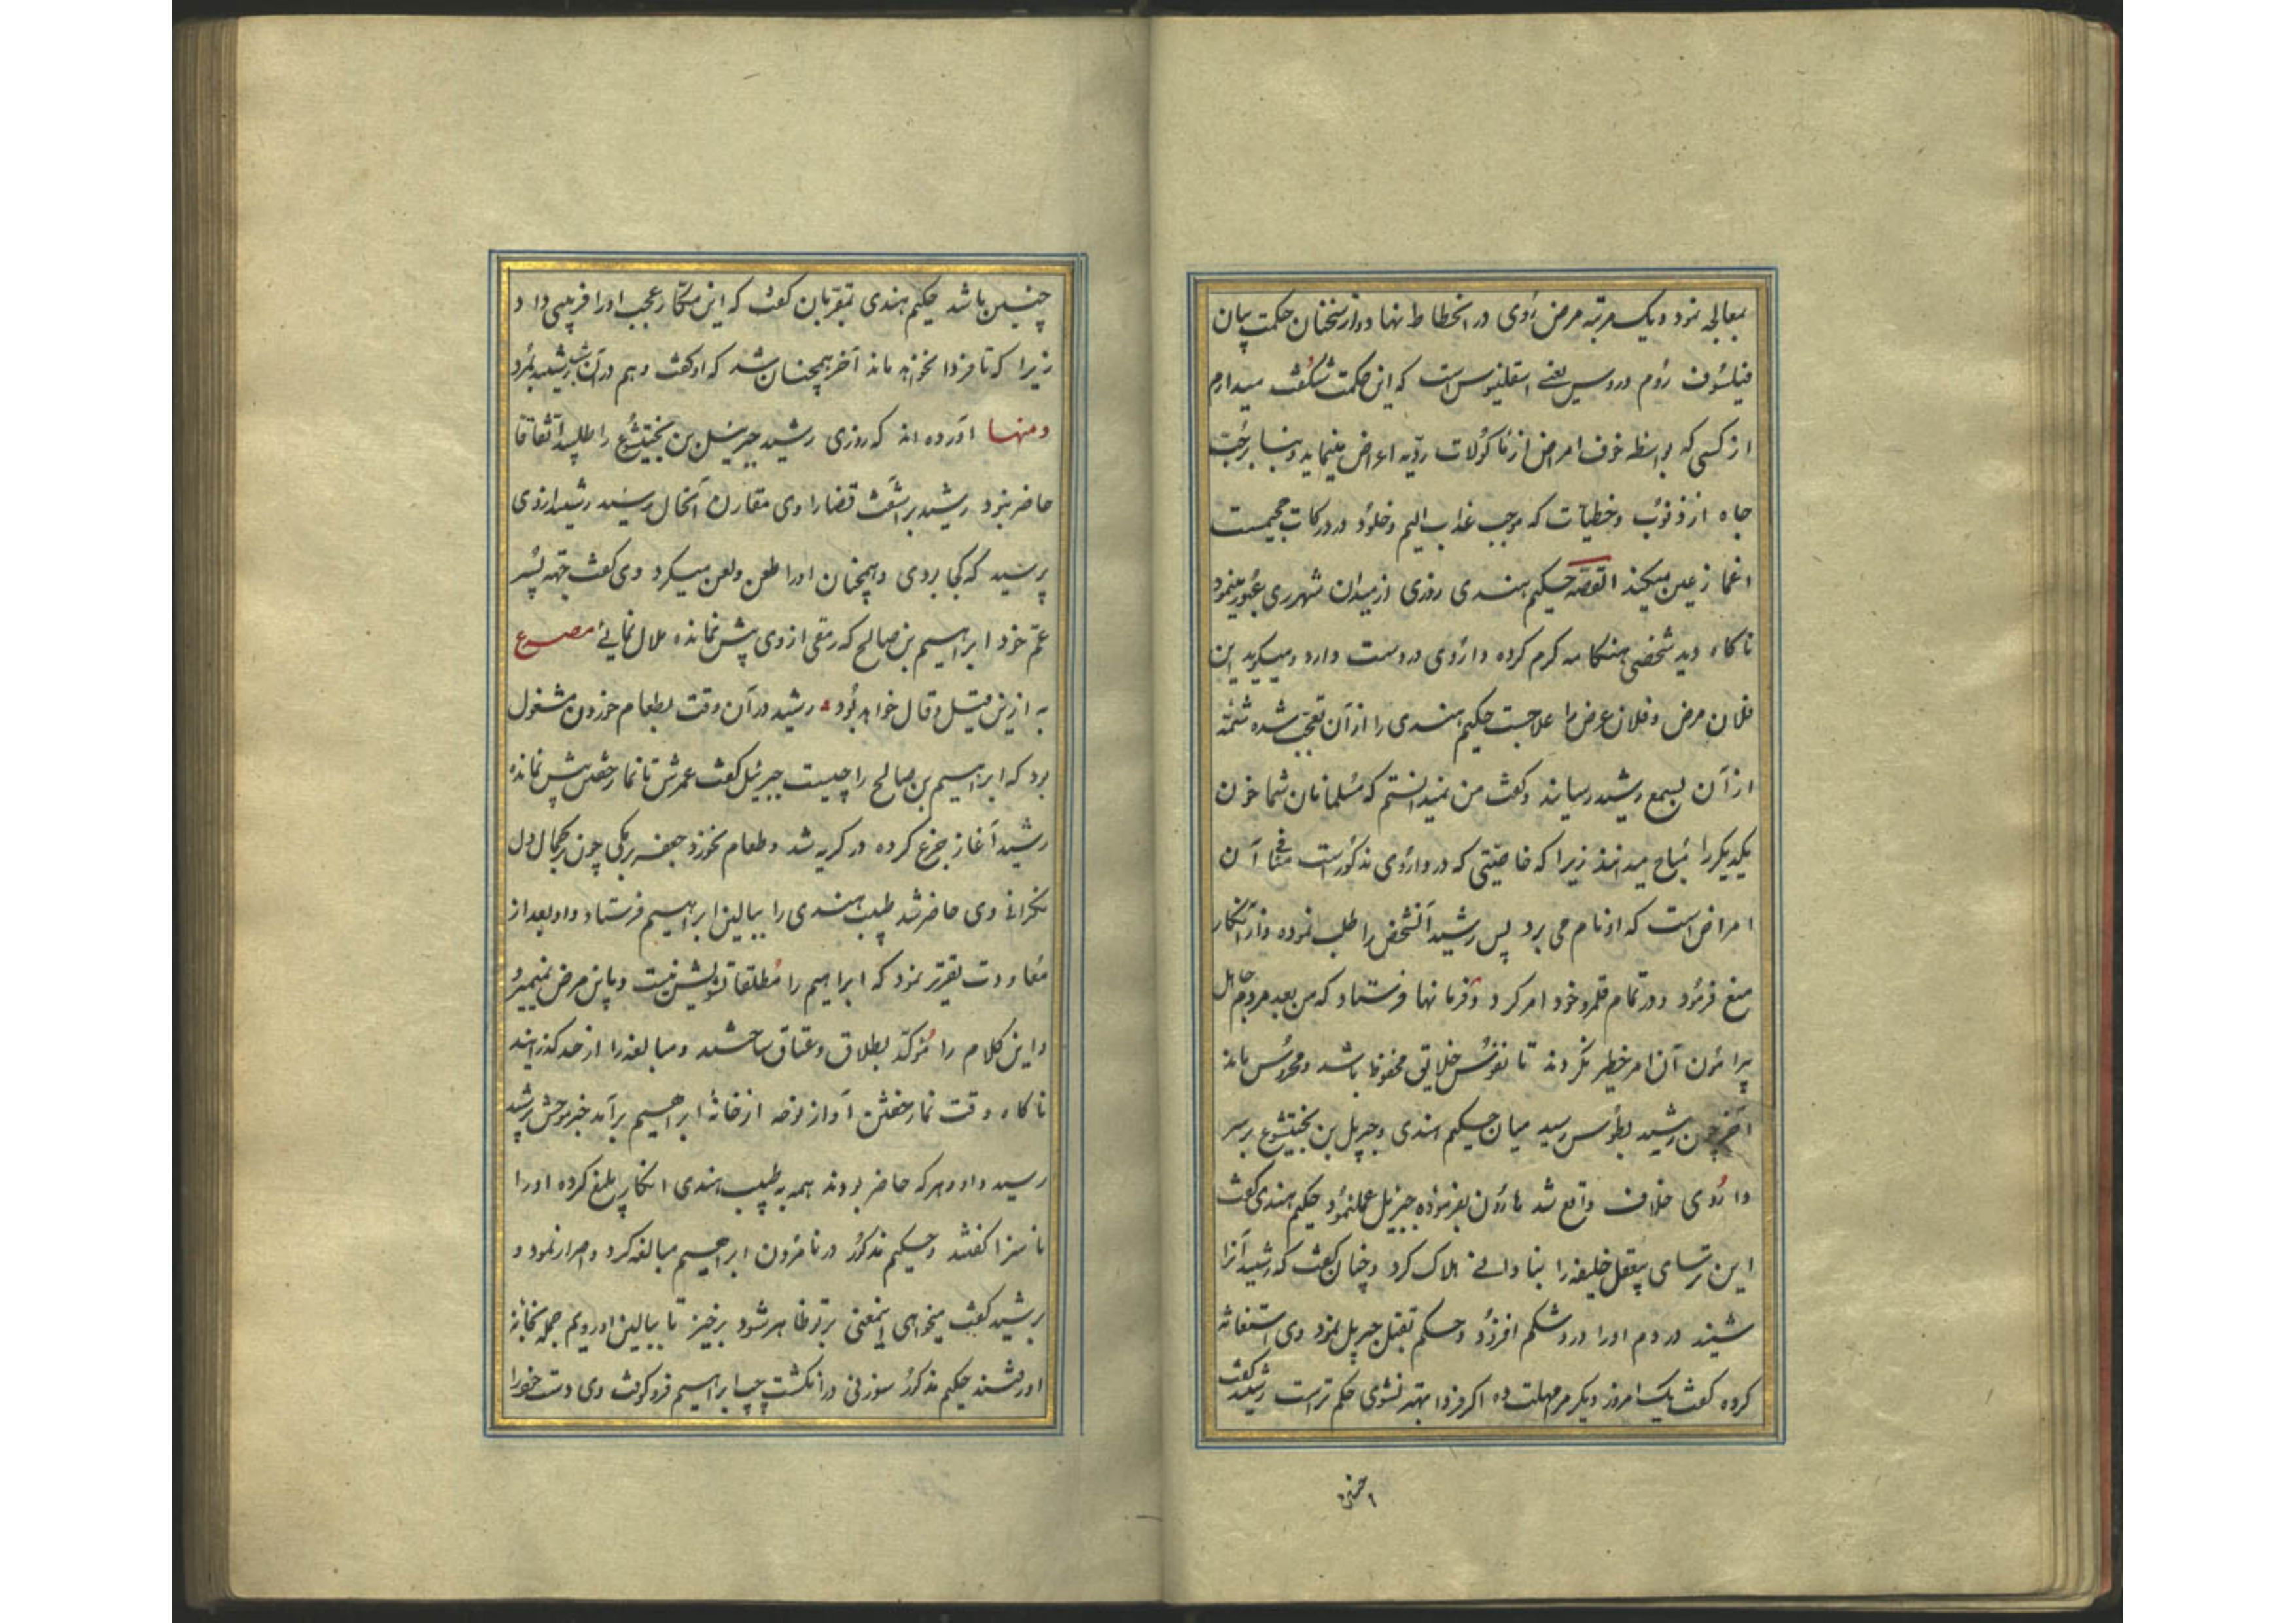 بمعالجه نمود و یک مرتبه مرض روی در انحطاط نهاد و از سخنان حکمت بیان
فیلسوف روم دروس یعنی اسقلنیوس است که این حکمت شگفت میدارم
از کسی که بواسطه خوف امراض از ماکولات ردیه اعراض مینماید و بنا بر حب
جاه از ذنوب و خطیات که موجب عذاب الیم و خلود در درکات جحیمست
اغماز عین میکند القصه حکیم هندی روزی از میدان شهر ری عبور مینمود
ناکاه دید شخصی هنکامه کرم کرده داروی در دست دارد و میکوید این
فلان مرض و فلان عرض را علاجست حکیم هندی را از آن تعجب شده شمّه
از آن بسمع رشید رسانید و کفت من نمیدانستم که مسلمانان شما خون
یکدیکر را مباح میدانند زیرا که خاصیتی که در داروی مذکورست منافی آن
امراض است که او نام می برد پس رشید آنشخص را طلب نموده و از آنکار
منع فرمود و در تمام قلمرو خود امر کرد و فرمانها فرستاد که من بعد مردم جاهل
پیرامون آن امر خطیر نکردند تا نفوس خلایق محفوظ باشد و محروس ماند
آخر چون رشید بطوس رسید میان حکیم هندی و جبریل بن بختیشوع بر سر
داروی خلاف واقع شد هارون بفرموده جبریل عملنمود حکیم هندی کفت
این ترسای بیعقل خلیفه را بنادانی هلاک کرد و چنان کفت که رشید آنرا
شنید در دم او را درد شکم افزود و حکم بقتل جبریل نمود وی استغاثه
کرده کفت یک امروز دیکر مرا مهلت ده اکر فردا بهتر نشوی حکم تراست رشید کفت
چنین
چنین باشد حکیم هندی بمقربان کفت که این مکار عجب او را فریبی داد
زیرا که تا فردا نخواهد ماند آخر همچنان شد که او کفت و هم در آن شب رشید بمرد
ومنها آورده اند که روزی رشید جبرئیل بن بختیشوع را طلبید اتفاقا
حاضر نبود رشید برآشفت قضا را وی مقارن آنحال رسید رشید از وی
پرسید که کجا بودی و همچنان او را طعن و لعن میکرد وی کفت جهه پسر
عم خود ابراهیم بن صالح که رمقی از وی بیش نمانده ملال نمائی مصرع
به ازین قیل و قال خواهد بود رشید در آن وقت بطعام خوردن مشغول
بود که ابراهیم بن صالح را چیست جبرئیل کفت عمرش تا نماز خفتن بیش نمانده
رشید آغاز جزع کرده در کریه شد و طعام نخورد جعفر برمکی چون بر کمال دل
نکرانی وی حاضر شد طبیب هندی را ببالین ابراهیم فرستاد و او بعد از
معاودت تقریر نمود که ابراهیم را مطلقا تشویش نیست و باین مرض نمیمیرد
و این کلام را مؤکد بطلاق و عتاق ساخته و مبالغه را از حد کذرانید
ناکاه وقت نماز خفتن آواز نوحه از خانهٔ ابراهیم برآمد خبر موحش برشید
رسید و او و هر که حاضر بودند همه بر طبیب هندی انکار بلیغ کرده او را
ناسزا کفتند و حکیم مذکور در نامردن ابراهیم مبالغه کرد و اصرار نمود و
برشید کفت میخواهی اینمعنی بر تو ظاهر شود برخیز تا ببالین او رویم جمله بخانه
او رفتند حکیم مذکور سوزنی در انکشت چپ ابراهیم فرو کوفت وی دست خود را